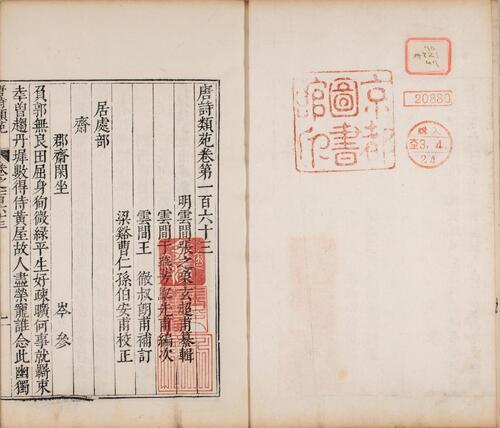 唐詩類苑卷第一百六十三
明雲間張之象玄超甫纂輯
雲間王徹叔朗甫補訂
梁谿曹仁孫伯安甫校正
居處部
齋
郡齋閑坐
岑參
負郭無良田屈身徇微祿平生好疎曠何事就羇束
幸曾趨丹墀數得侍黃屋故人盡榮寵誰念此幽獨
京都
圖書
館印
20880
購入
3.4.
24